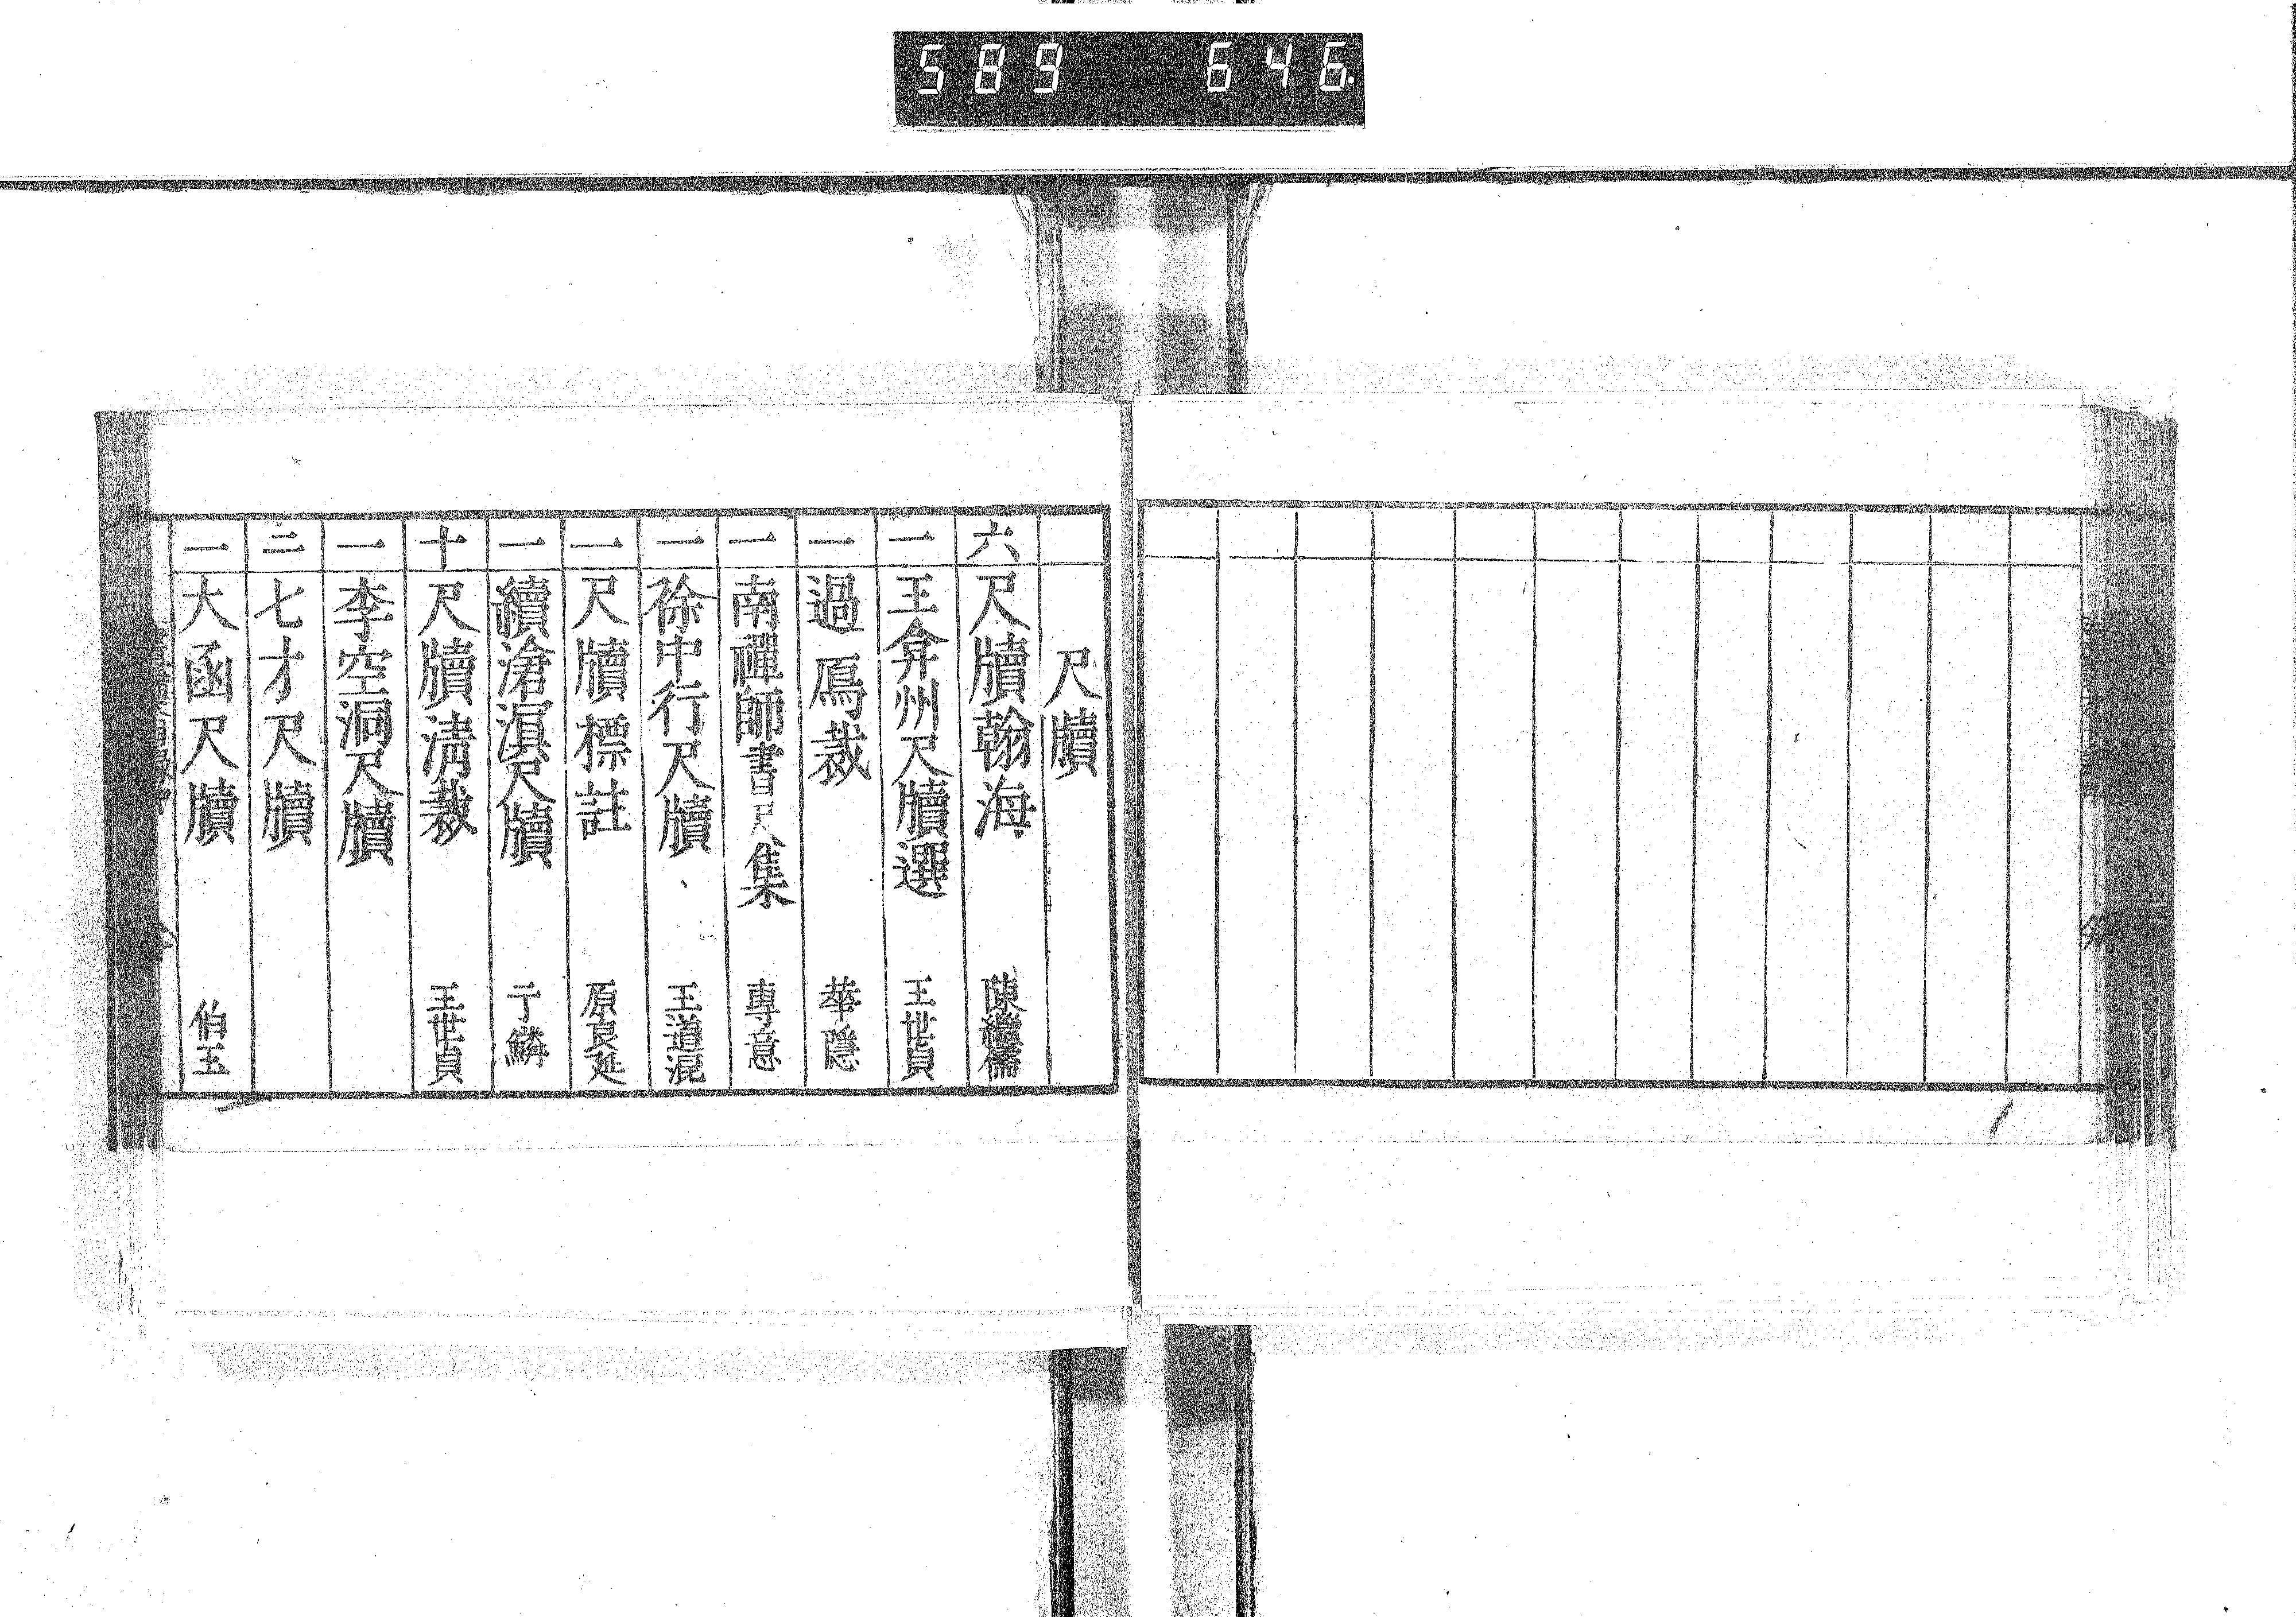 589 646
尺牘
六 尺牘翰海 陳繼儒
一 王弇州尺牘選 王世貞
一 過鴈裁 華隱
一 南禪師書尺集 專意
一 徐中行尺牘 王道混
一 尺牘標註 原良延
一 續滄溟尺牘 于鱗
十 尺牘清裁 王世貞
一 李空洞尺牘
二 七才尺牘
一 大函尺牘 伯玉